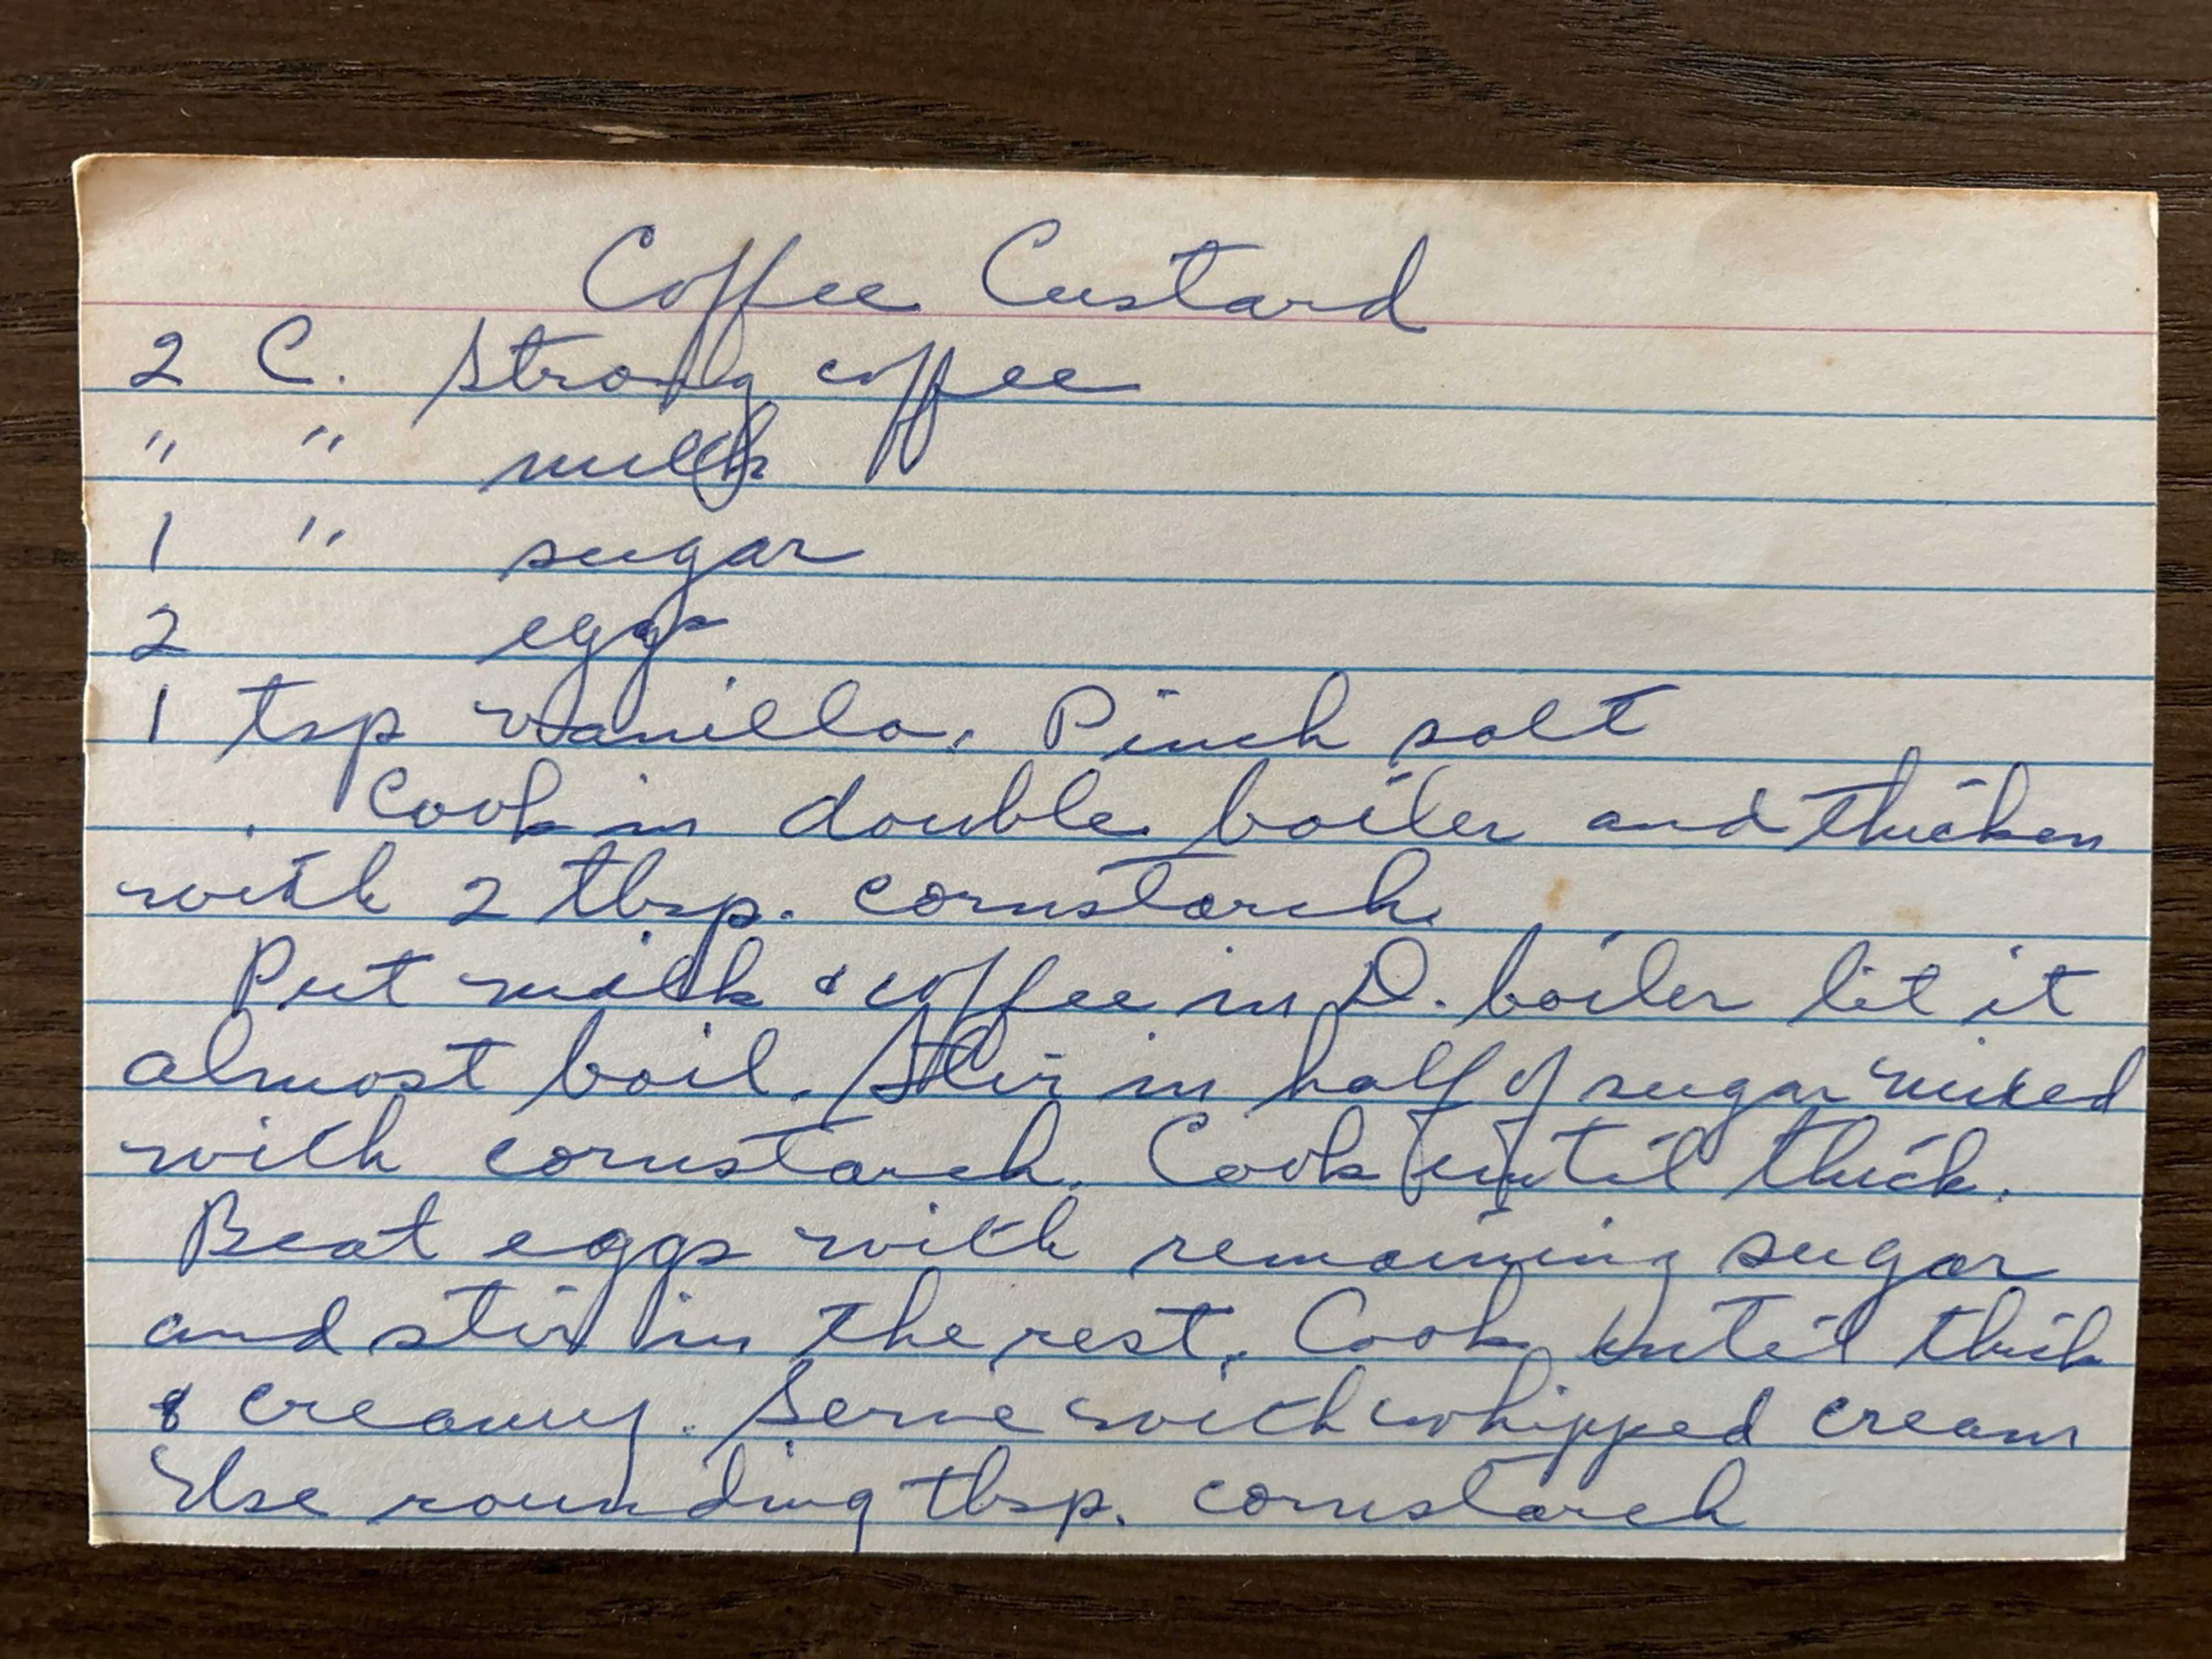 Coffee Custard
2 C. Strong coffee
" " milk
1 " sugar
2 eggs
1 tsp vanilla. Pinch salt
Cook in double boiler and thicken
with 2 tbsp. cornstarch.
Put milk & coffee in D. boiler let it
almost boil. Stir in half of sugar mixed
with cornstarch. Cook until thick.
Beat eggs with remaining sugar
and stir in the rest. Cook until thick
& creamy. Serve with whipped cream
Use rounding tbsp. cornstarch